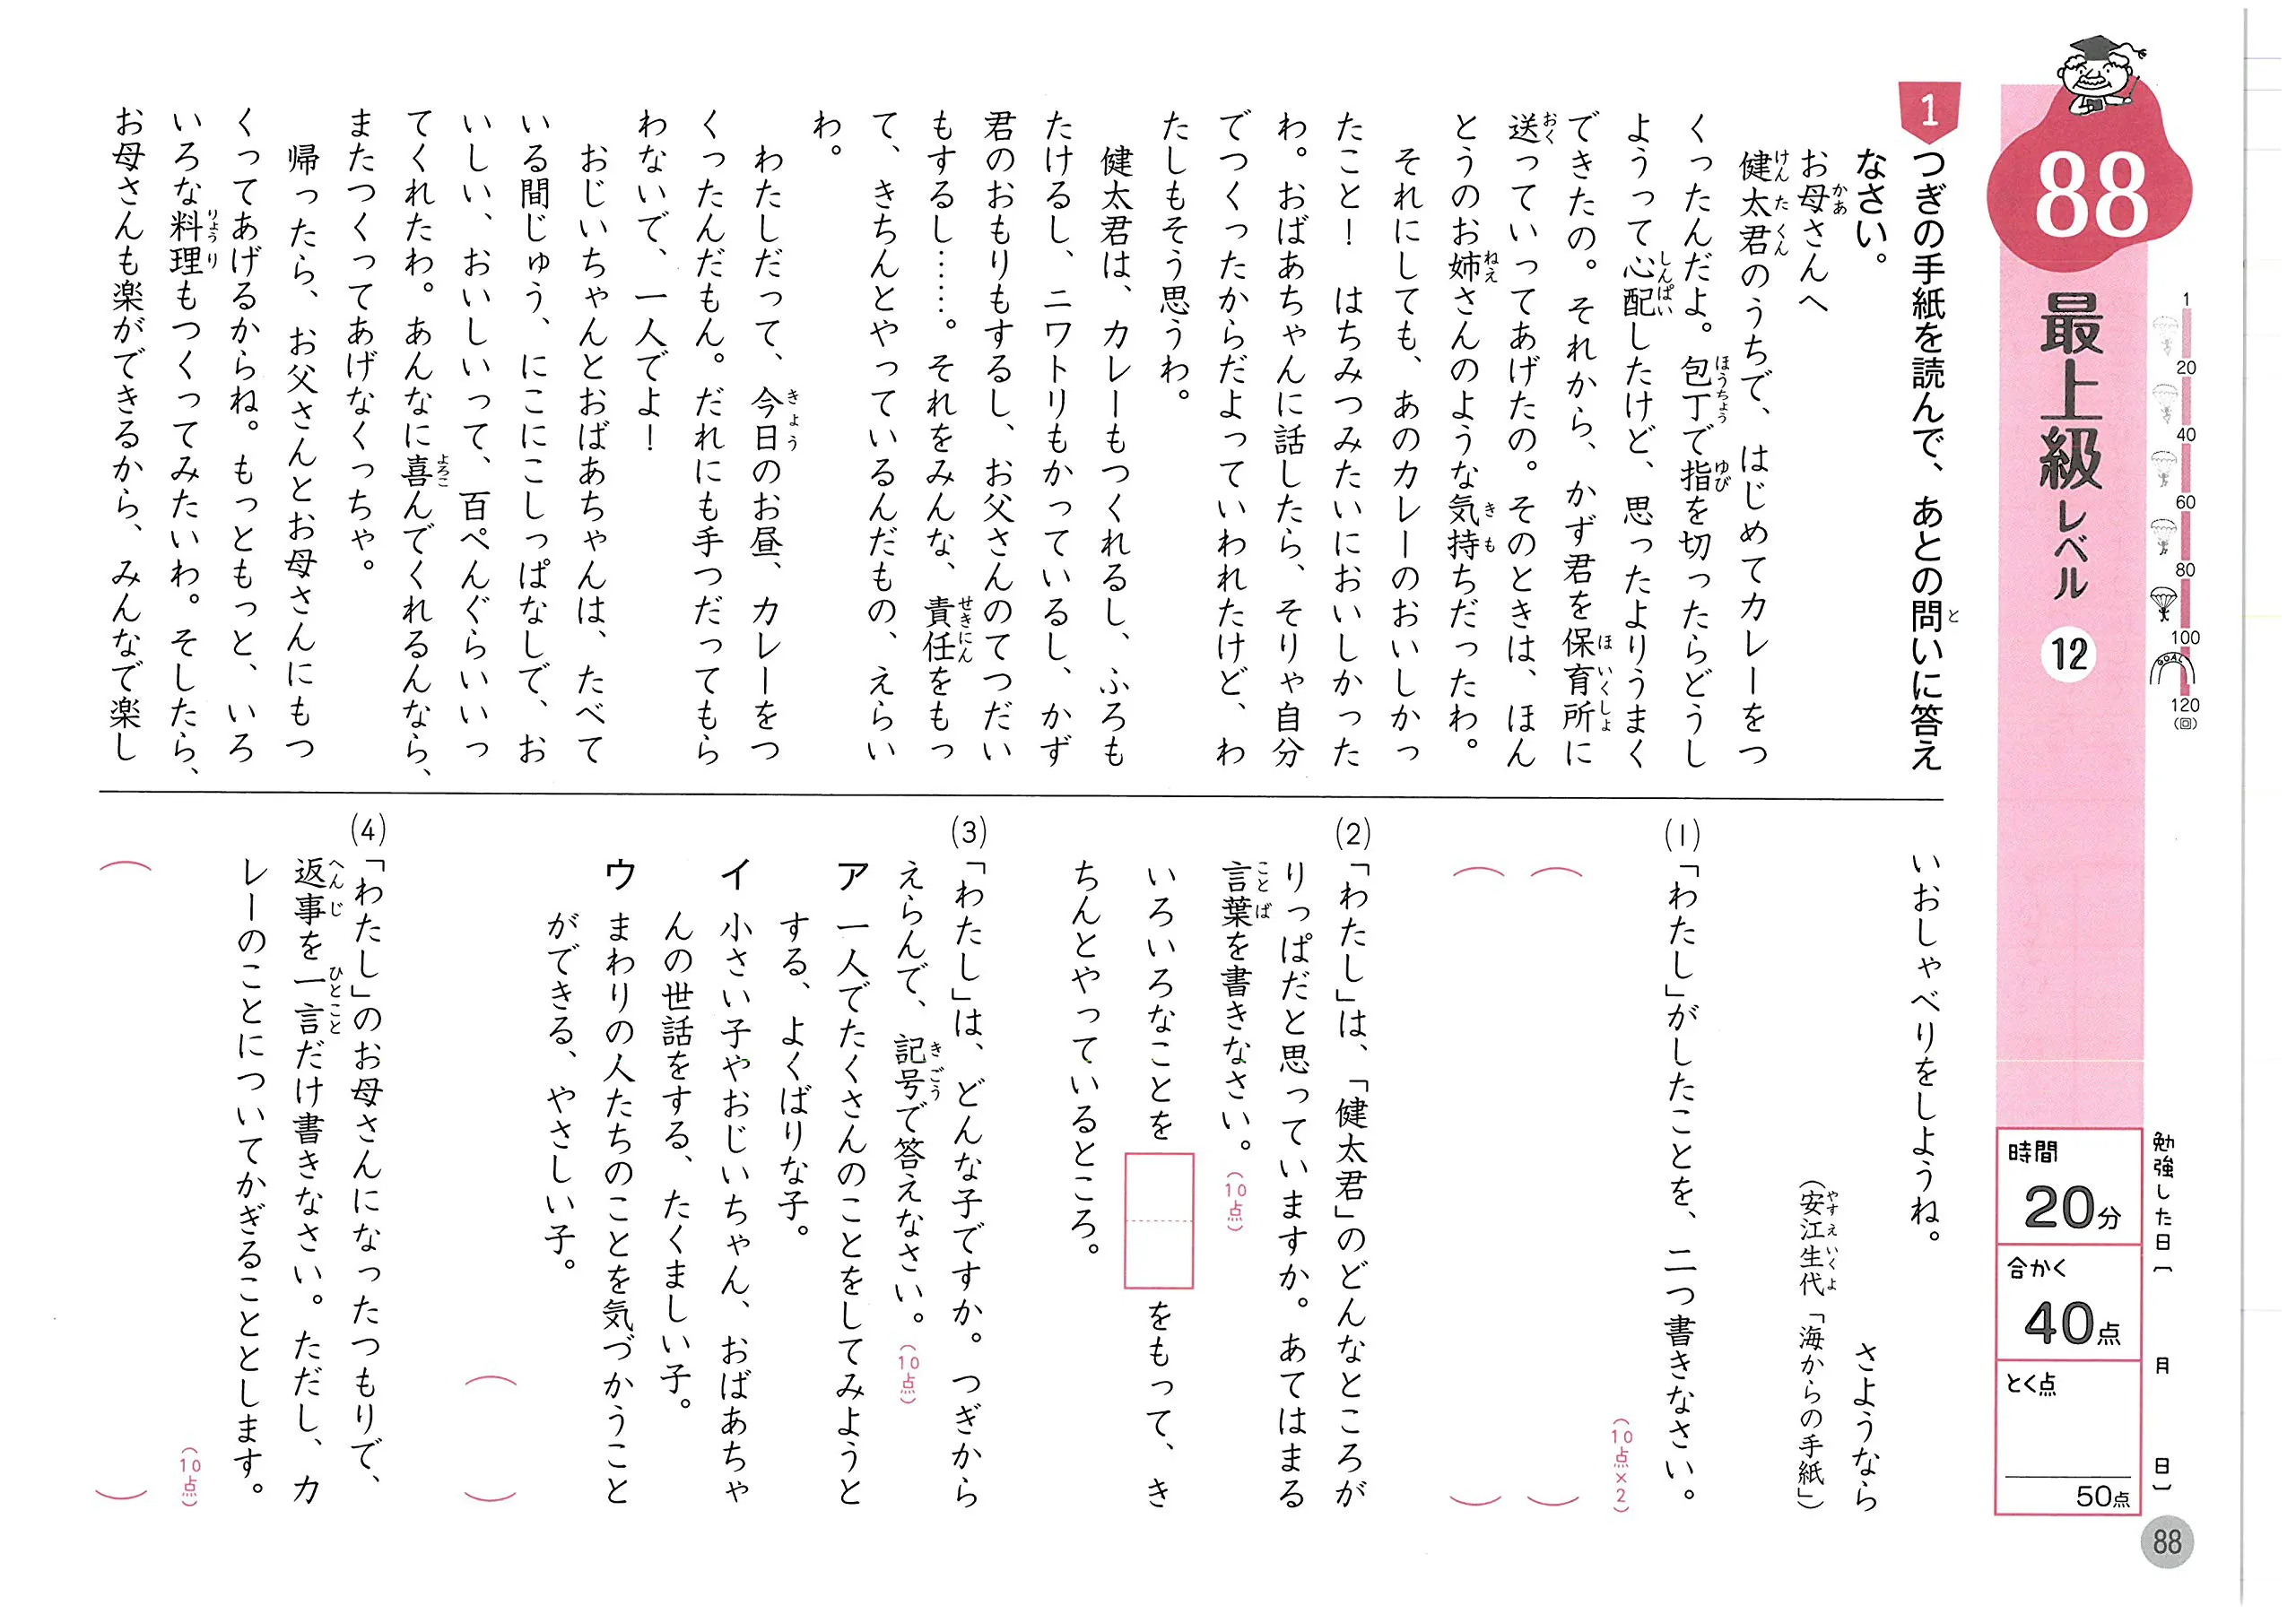 88
最上級レベル 12
1
20
40
60
80
100
GOAL
120
(回)
勉強した日〔 月 日〕
時間
20分
合かく
40点
とく点
50点
1
つぎの手紙を読んで、あとの問いに答え
なさい。
お母さんへ
健太君のうちで、はじめてカレーをつ
くったんだよ。包丁で指を切ったらどうし
ようって心配したけど、思ったよりうまく
できたの。それから、かず君を保育所に
送っていってあげたの。そのときは、ほん
とうのお姉さんのような気持ちだったわ。
それにしても、あのカレーのおいしかっ
たこと! はちみつみたいにおいしかった
わ。おばあちゃんに話したら、そりゃ自分
でつくったからだよっていわれたけど、わ
たしもそう思うわ。
健太君は、カレーもつくれるし、ふろも
たけるし、ニワトリもかっているし、かず
君のおもりもするし、お父さんのてつだい
もするし……。それをみんな、責任をもっ
て、きちんとやっているんだもの、えらい
わ。
わたしだって、今日のお昼、カレーをつ
くったんだもん。だれにも手つだってもら
わないで、一人でよ!
おじいちゃんとおばあちゃんは、たべて
いる間じゅう、にこにこしっぱなしで、お
いしい、おいしいって、百ぺんぐらいいっ
てくれたわ。あんなに喜んでくれるんなら、
またつくってあげなくっちゃ。
帰ったら、お父さんとお母さんにもつ
くってあげるからね。もっともっと、いろ
いろな料理もつくってみたいわ。そしたら、
お母さんも楽ができるから、みんなで楽し
いおしゃべりをしようね。
さようなら
(安江生代「海からの手紙」)
(1)「わたし」がしたことを、二つ書きなさい。
(10点×2)
(2)「わたし」は、「健太君」のどんなところが
りっぱだと思っていますか。あてはまる
言葉を書きなさい。(10点)
いろいろなことを をもって、き
ちんとやっているところ。
(3)「わたし」は、どんな子ですか。つぎから
えらんで、記号で答えなさい。(10点)
ア 一人でたくさんのことをしてみようと
する、よくばりな子。
イ 小さい子やおじいちゃん、おばあちゃ
んの世話をする、たくましい子。
ウ まわりの人たちのことを気づかうこと
ができる、やさしい子。
(4)「わたし」のお母さんになったつもりで、
返事を一言だけ書きなさい。ただし、カ
レーのことについてかぎることとします。
(10点)
88